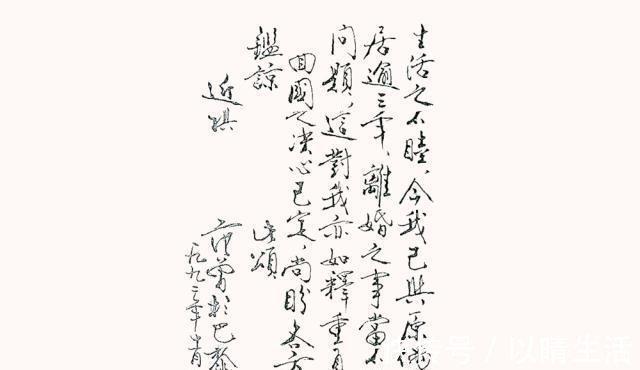 生活之不睦，今我已與原偶
居逾三年、離婚之事當不
問題，這對我亦如釋重負
回國之决心已定，尚盼各方
鑑諒
近祺
范曾於巴黎
一九九三年
以晴生活